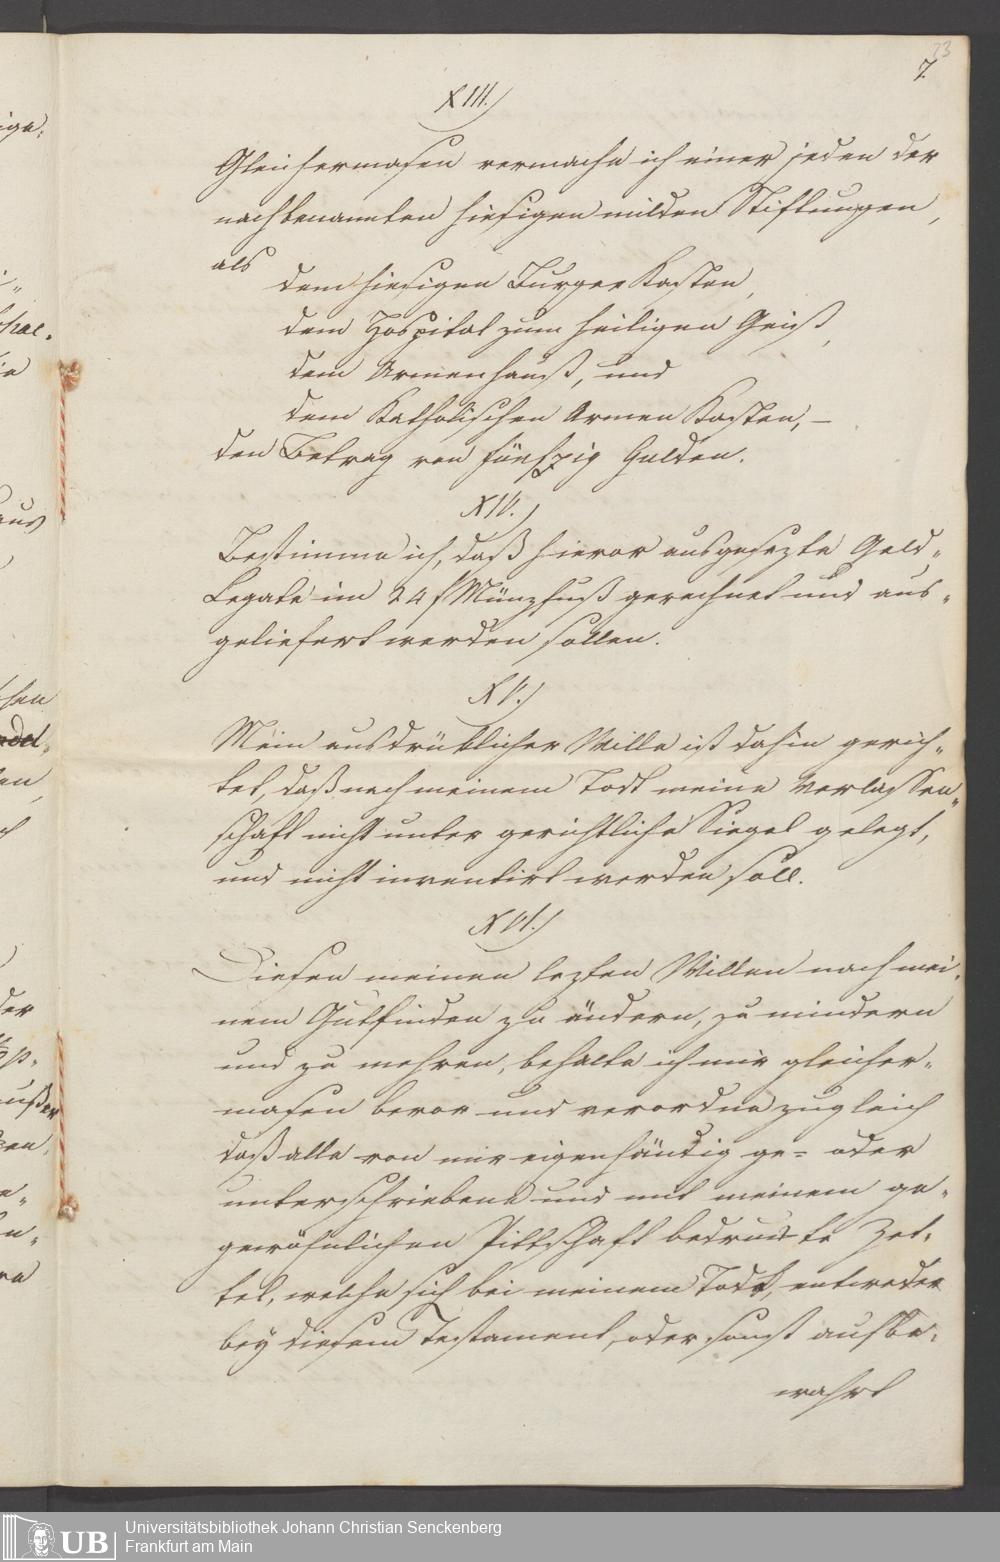 23
7.
XIII.)
Gleichermasen vermache ich einer jeden der
nachbenannten hiesigen milden Stiftungen,
als
dem hiesigen Burger Kasten,
dem Hospital zum heiligen Geist,
dem Armenhauß, und
dem Katholischen Armen Kasten, –
den Betrag von fünfzig Gulden.
XIV.)
Bestimme ich, daß hievor ausgesezte Geld„
Legate im 24 f Münzfuß gerechnet und aus„
geliefert werden sollen.
XV.)
Mein ausdrüklicher Wille ist dahin gerich„
tet, daß nach meinem Todt meine Verlassen„
schaft nicht unter gerichtliche Siegel gelegt,
und nicht inventirt werden soll.
XVI.)
Diesen meinen lezten Willen nach mei„
nem Gutfinden zu ändern, zu mindern
und zu mehren, behalte ich mir gleicher„
masen bevor und verordne zugleich
daß alle von mir eigenhändig ge= oder
unterschriebene und mit meinem ge„
gewöhnlichen Pittschaft bedruckte Zet„
tel, welche sich bei meinem Todt, entweder
bey diesem Testament, oder sonst aufbe„
wahrt
Universitätsbibliothek Johann Christian Senckenberg
Frankfurt am Main
UB